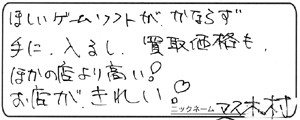 ほしいゲームソフトが、かならず
手に入るし、買取価格も、
ほかの店より高い!
お店が、きれい!
ニックネーム マス木村